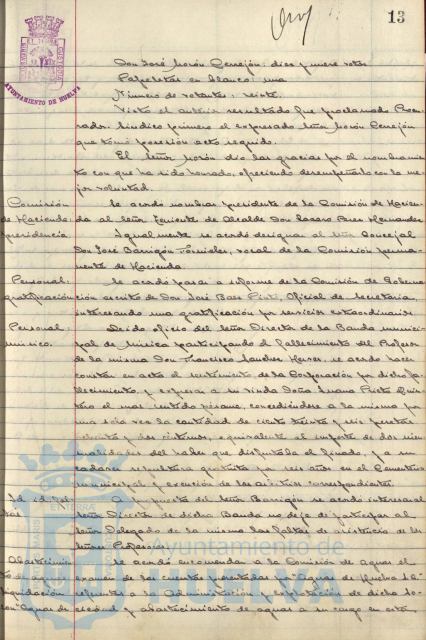 13
AYUNTAMIENTO DE HUELVA
Don José Morón Cerrejón: diez y nueve votos
Papeletas en blanco: una
Número de votantes: veinte.
Visto el anterior resultado fue proclamado Procu-
rador Síndico primero el expresado Señor Morón Cerrejón
que tomó posesión acto seguido.
El Señor Morón dio las gracias por el nombramien-
to con que ha sido honrado, ofreciendo desempeñarlo con la me-
jor voluntad.
Comisión
de Hacienda:
presidencia
Se acordó nombrar presidente de la Comisión de Hacien-
da al Señor Teniente de Alcalde Don Lázaro Pérez Hernández
Igualmente se acordó designar al Señor Concejal
Don José Barrigón Fornieles, vocal de la Comisión perma-
nente de Hacienda.
Personal:
gratificación
Se acordó pasar a informe de la Comisión de Goberna-
ción escrito de Don José Baez Oficial de Secretaría,
interesando una gratificación por servicios extraordinarios
Personal:
músico.
Leído oficio del Señor Director de la Banda munici-
pal de Música participando el fallecimiento del Profesor
de la misma Don Francisco Sánchez se acordó hacer
constar en acta el sentimiento de la Corporación por dicho fa-
llecimiento, y expresar a su viuda Doña Juana Prieto
el más sentido pésame, concediéndose a la misma por
una sola vez la cantidad de ciento treinta y seis pesetas
y céntimos, equivalente al importe de dos men-
sualidades del haber que disfrutaba el finado, y a su
cadáver sepultura gratuita por seis años en el Cementerio
municipal, y exención de los arbitrios correspondientes.
Id. id.
A propuesta del Señor Barrigón se acordó interesar al
Señor Director de dicha Banda no deje de participar al
Señor Delegado de la misma las faltas de asistencia de los
Señores Profesores.
Abastecimien-
to de aguas
liquidación
con Aguas de
Se acordó encomendar a la Comisión de aguas el
examen de las cuentas presentadas por "Aguas de Huelva S.A."
referentes a la Administración y explotación de dicha So-
ciedad y abastecimiento de aguas a su cargo en esta
Ayuntamiento de
HUELVA